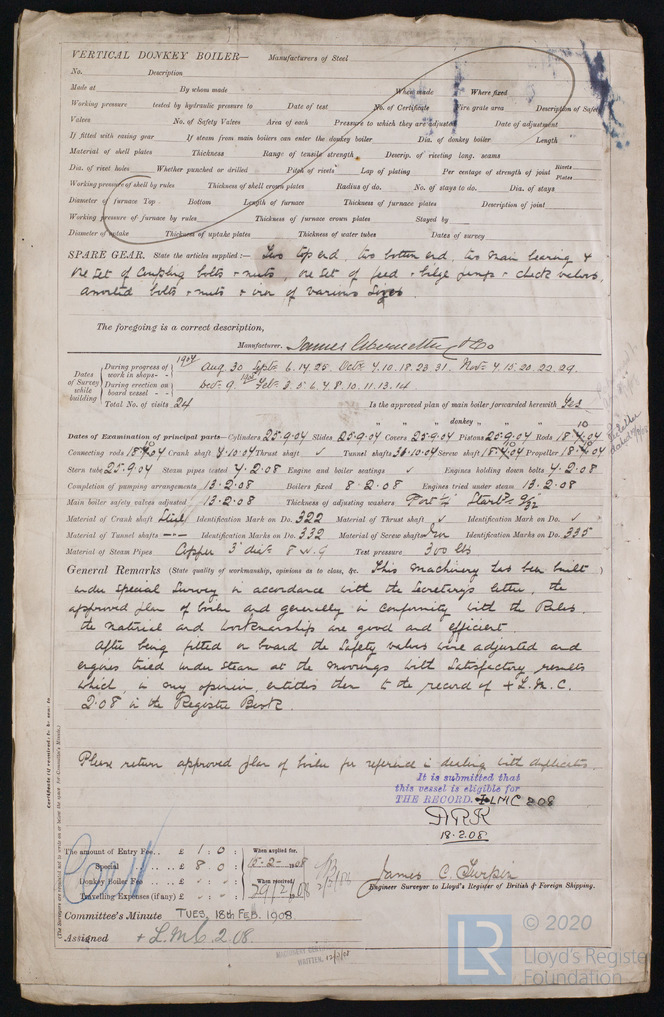 VERTICAL DONKEY BOILER— Manufacturers of Steel
No. Description
Made at By whom made When made Where fixed
Working pressure tested by hydraulic pressure to Date of test No. of Certificate Fire grate area Description of Safety
Valves No. of Safety Valves Area of each Pressure to which they are adjusted Date of adjustment
If fitted with easing gear If steam from main boilers can enter the donkey boiler Dia. of donkey boiler Length
Material of shell plates Thickness Range of tensile strength Descrip. of riveting long. seams
Dia. of rivet holes Whether punched or drilled Pitch of rivets Lap of plating Per centage of strength of joint Rivets Plates
Working pressure of shell by rules Thickness of shell crown plates Radius of do. No. of stays to do. Dia. of stays
Diameter of furnace Top Bottom Length of furnace Thickness of furnace plates Description of joint
Working pressure of furnace by rules Thickness of furnace crown plates Stayed by
Diameter of uptake Thickness of uptake plates Thickness of water tubes Dates of survey
SPARE GEAR. State the articles supplied:— Two top end, two bottom end, two main bearing &
one set of coupling bolts & nuts, one set of feed & bilge pump & check valves,
assorted bolts & nuts & iron of various sizes.
The foregoing is a correct description,
Manufacturer. James Abernethy & Co
Dates of Survey while building
During progress of work in shops - - 1907 Aug. 30 Sept. 6. 17. 25 Oct. 4. 10. 18. 23. 31. Nov. 4. 15. 20. 22. 29.
During erection on board vessel - - Dec. 9. 1908 Feb. 3. 5. 6. 7. 8. 10. 11. 13. 14
Total No. of visits 24 Is the approved plan of main boiler forwarded herewith Yes
" " " donkey " " "
Dates of Examination of principal parts—Cylinders 25.9.07 Slides 25.9.07 Covers 25.9.07 Pistons 25.9.07 Rods 18.10.07
Connecting rods 18.10.07 Crank shaft 4.10.07 Thrust shaft ✓ Tunnel shafts Screw shaft 18.10.07 Propeller 18.10.07
Stern tube 25.9.07 Steam pipes tested 7.2.08 Engine and boiler seatings ✓ Engines holding down bolts 7.2.08
Completion of pumping arrangements 13.2.08 Boilers fixed 8.2.08 Engines tried under steam 13.2.08
Main boiler safety valves adjusted 13.2.08 Thickness of adjusting washers Port 1/4 Starbd 9/32
Material of Crank shaft Steel Identification Mark on Do. 322 Material of Thrust shaft ✓ Identification Mark on Do. ✓
Material of Tunnel shafts Identification Marks on Do. 332 Material of Screw shafts Iron Identification Marks on Do. 335
Material of Steam Pipes Copper 3" dia. 8 w.g Test pressure 300 lbs
General Remarks (State quality of workmanship, opinions as to class, &c. This machinery has been built
under special survey in accordance with the Secretary's letter, the
approved plan of boiler and generally in conformity with the Rules.
the material and workmanship are good and efficient.
After being fitted on board the safety valves were adjusted and
engines tried under steam at the moorings with satisfactory results
which, in my opinion, entitles them to the record of + L.M.C.
2.08 in the Register Book.
Please return approved plan of boiler for reference in dealing with duplicates.
It is submitted that
this vessel is eligible for
THE RECORD. + LMC 2.08
18.2.08
The amount of Entry Fee . . £ 1 : 0 : When applied for.
Special . . . . £ 8 : 0 : 15-2-1908
Donkey Boiler Fee . . . . £ - : - : When received,
Travelling Expenses (if any) £ - : - : 29/2/08
James C. Turpin
Engineer Surveyor to Lloyd's Register of British & Foreign Shipping.
Committee's Minute TUES. 18th FEB. 1908.
Assigned + L.M.C. 2.08.
MACHINERY CERTIFICATE
WRITTEN.
© 2020
LR
Lloyd's Register
Foundation